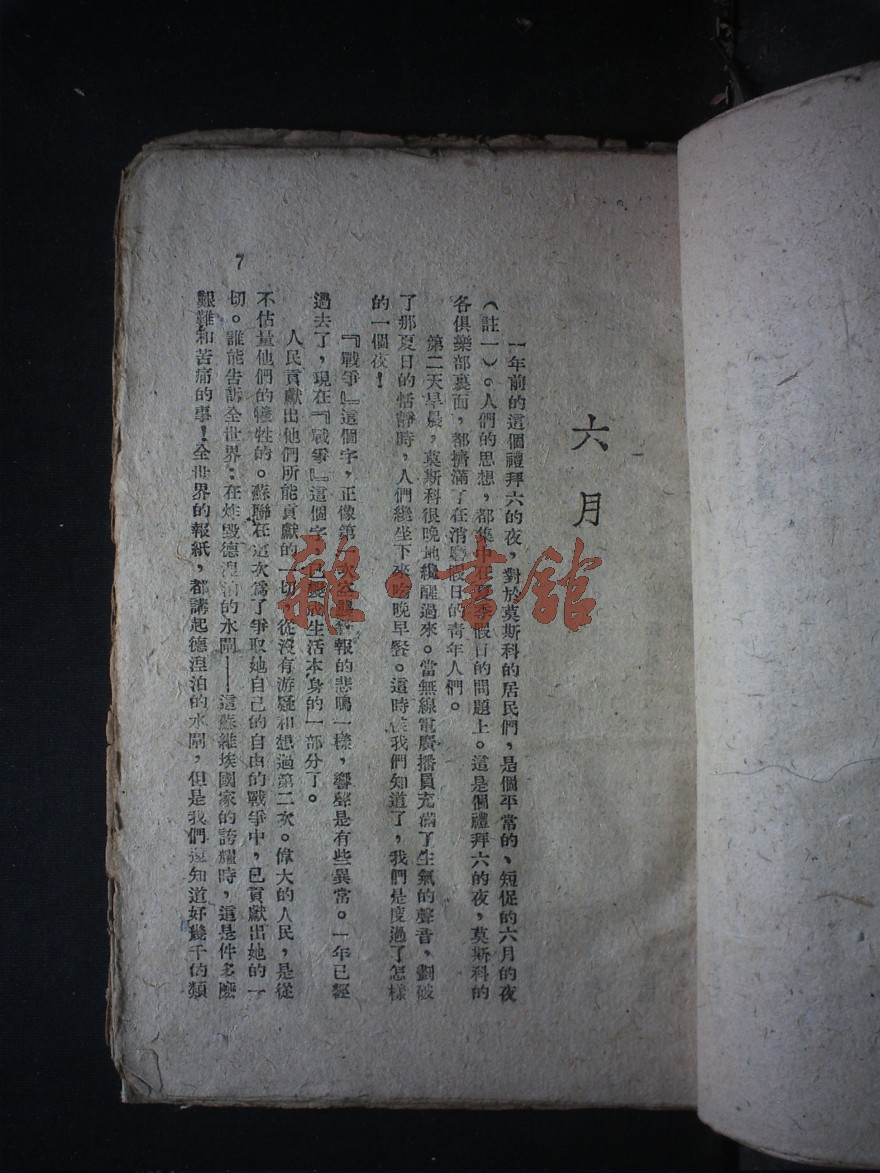 六月
一年前的這個禮拜六的夜，對於莫斯科的居民們，是個平常的、短促的六月的夜
（註一）。人們的思想，都集中在夏季假日的問題上。這是個禮拜六的夜，莫斯科的
各俱樂部裏面，都擠滿了在消磨假日的青年人們。
第二天早晨，莫斯科很晚地纔醒過來。當無線電廣播員充滿了生氣的聲音，劃破
了那夏日的恬靜時，人們纔坐下來吃晚早餐。這時候我們知道了，我們是度過了怎樣
的一個夜！
『戰爭』這個字，正像第一次空襲警報的悲鳴一樣，響聲是有些異常。一年已經
過去了，現在『戰爭』這個字，已變成生活本身的一部分了。
人民貢獻出他們所能貢獻的一切，從沒有游疑和想過第二次。偉大的人民，是從
不估量他們的犧牲的。蘇聯在這次爲了爭取她自己的自由的戰爭中，已貢獻出她的一
切。誰能告訴全世界：在炸毀德涅泊的水閘——這蘇維埃國家的誇耀時，這是件多麽
艱難和苦痛的事！全世界的報紙，都講起德涅泊的水閘，但是我們還知道好幾千的類
7
雜·書館